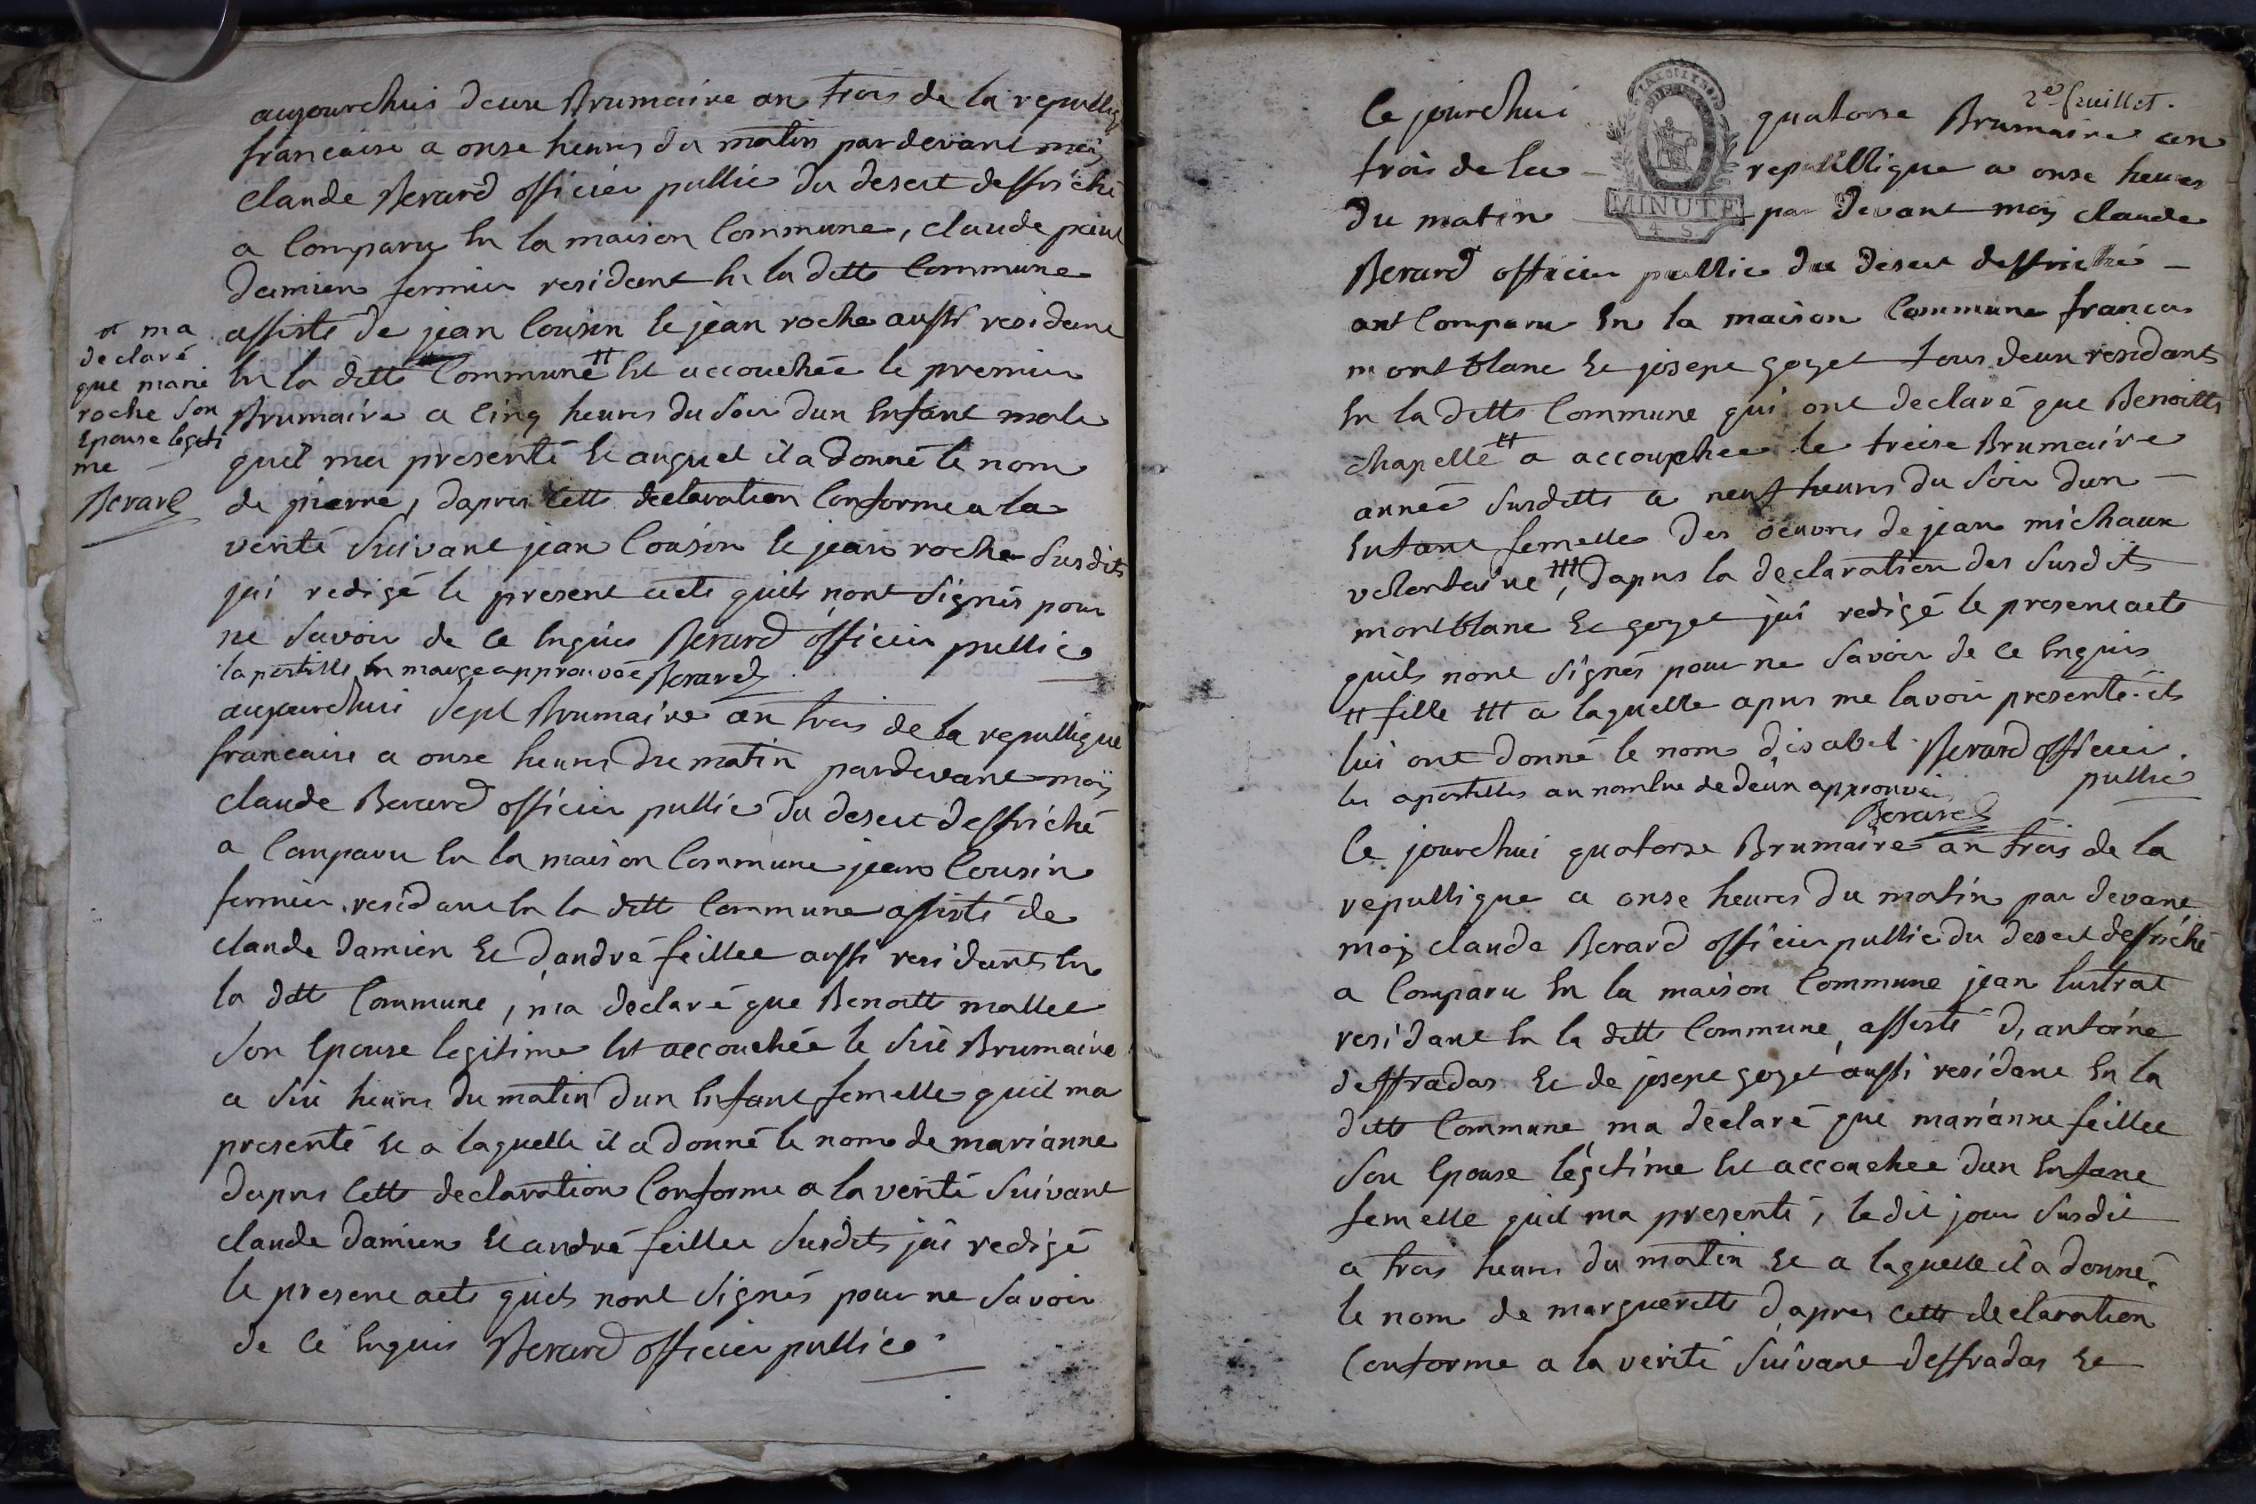 aujourdhui deux Brumaire an trois de la republiq
francaise a onse heures du matin pardevant moy
claude Berard officier public du desert deffriché
a Comparu En la maison Commune, claude
damien fermier residant En la ditte Commune
assisté de jean Cousin Et jean roche aussi residant
En la ditte Commune # Est accouchée le premier
Brumaire a Cinq heures du Soir dun Enfant male
quil ma presenté Et auquel il a donné le nom
de pierre, dapres Cette declaration Conforme a la
verité Suivant jean Cousin Et jean roche Susdits
jai redigé le present acte quils nont Signés pour
ne Savoir de Ce Enquis Berard officier public
lapostille En marge approuvée Berard
# ma
declaré
que marie
roche Son
Epouse legiti
me
Berard
aujourdhui Sept Brumaire an trois de la republique
francaise a onse heures du matin pardevant moy
claude Berard officier public du desert deffriché
a Comparu En la maison Commune jean Cousin
fermier residant En la ditte Commune assisté de
claude damien Et dandré feillet aussi residants En
la ditte Commune, ma declaré que Benoitte mallet
Son Epouse legitime Est accouchée le Six Brumaire
a Six heures du matin dun Enfant femelle quil ma
presenté Et a laquelle il a donné le nom de marianne
dapres Cette declaration Conforme a la verité Suivant
claude damien Et andré feillet Susdits jai redigé
le present acte quils nont Signés pour ne Savoir
de Ce Enquis Berard officier public
2e feuillet.
MINUTE
4 S
Ce jourdhui quatorse Brumaire an
trois de la republique a onse heures
du matin par devant moy claude
Berard officier public du desert deffriché
ont Comparu En la maison Commune francois
montblanc Et josepe goyet tous deux residants
En la ditte Commune qui ont declaré que Benoitte
chapelle # a accouchee le treise Brumaire
année Susditte a neuf heures du Soir dun
Enfant femelle des oeuvres de jean michaux
volontaire, ### dapres la declaration des Susdits
montblanc Et goyet jai redigé le present acte
quils nont Signés pour ne Savoir de Ce Enquis
# fille ### a laquelle apres me lavoir presenté ils
lui ont donné le nom disabel. Berard officier
public
les apostilles au nombre de deux approuvées
Berard
Ce jourdhui quatorse Brumaire an trois de la
republique a onse heures du matin par devant
moy claude Berard officier public du desert deffriché
a Comparu En la maison Commune jean lustrat
residant En la ditte Commune, assisté d'antoine
deffradas Et de josepe goyet aussi residant En la
ditte Commune, ma declaré que marianne feillet
Son Epouse légitime Est accouchee dun Enfant
femelle quil ma presenté, le dit jour Susdit
a trois heures du matin Et a laquelle il a donné
le nom de margueritte dapres Cette declaration
Conforme a la verité Suivant deffradas Et